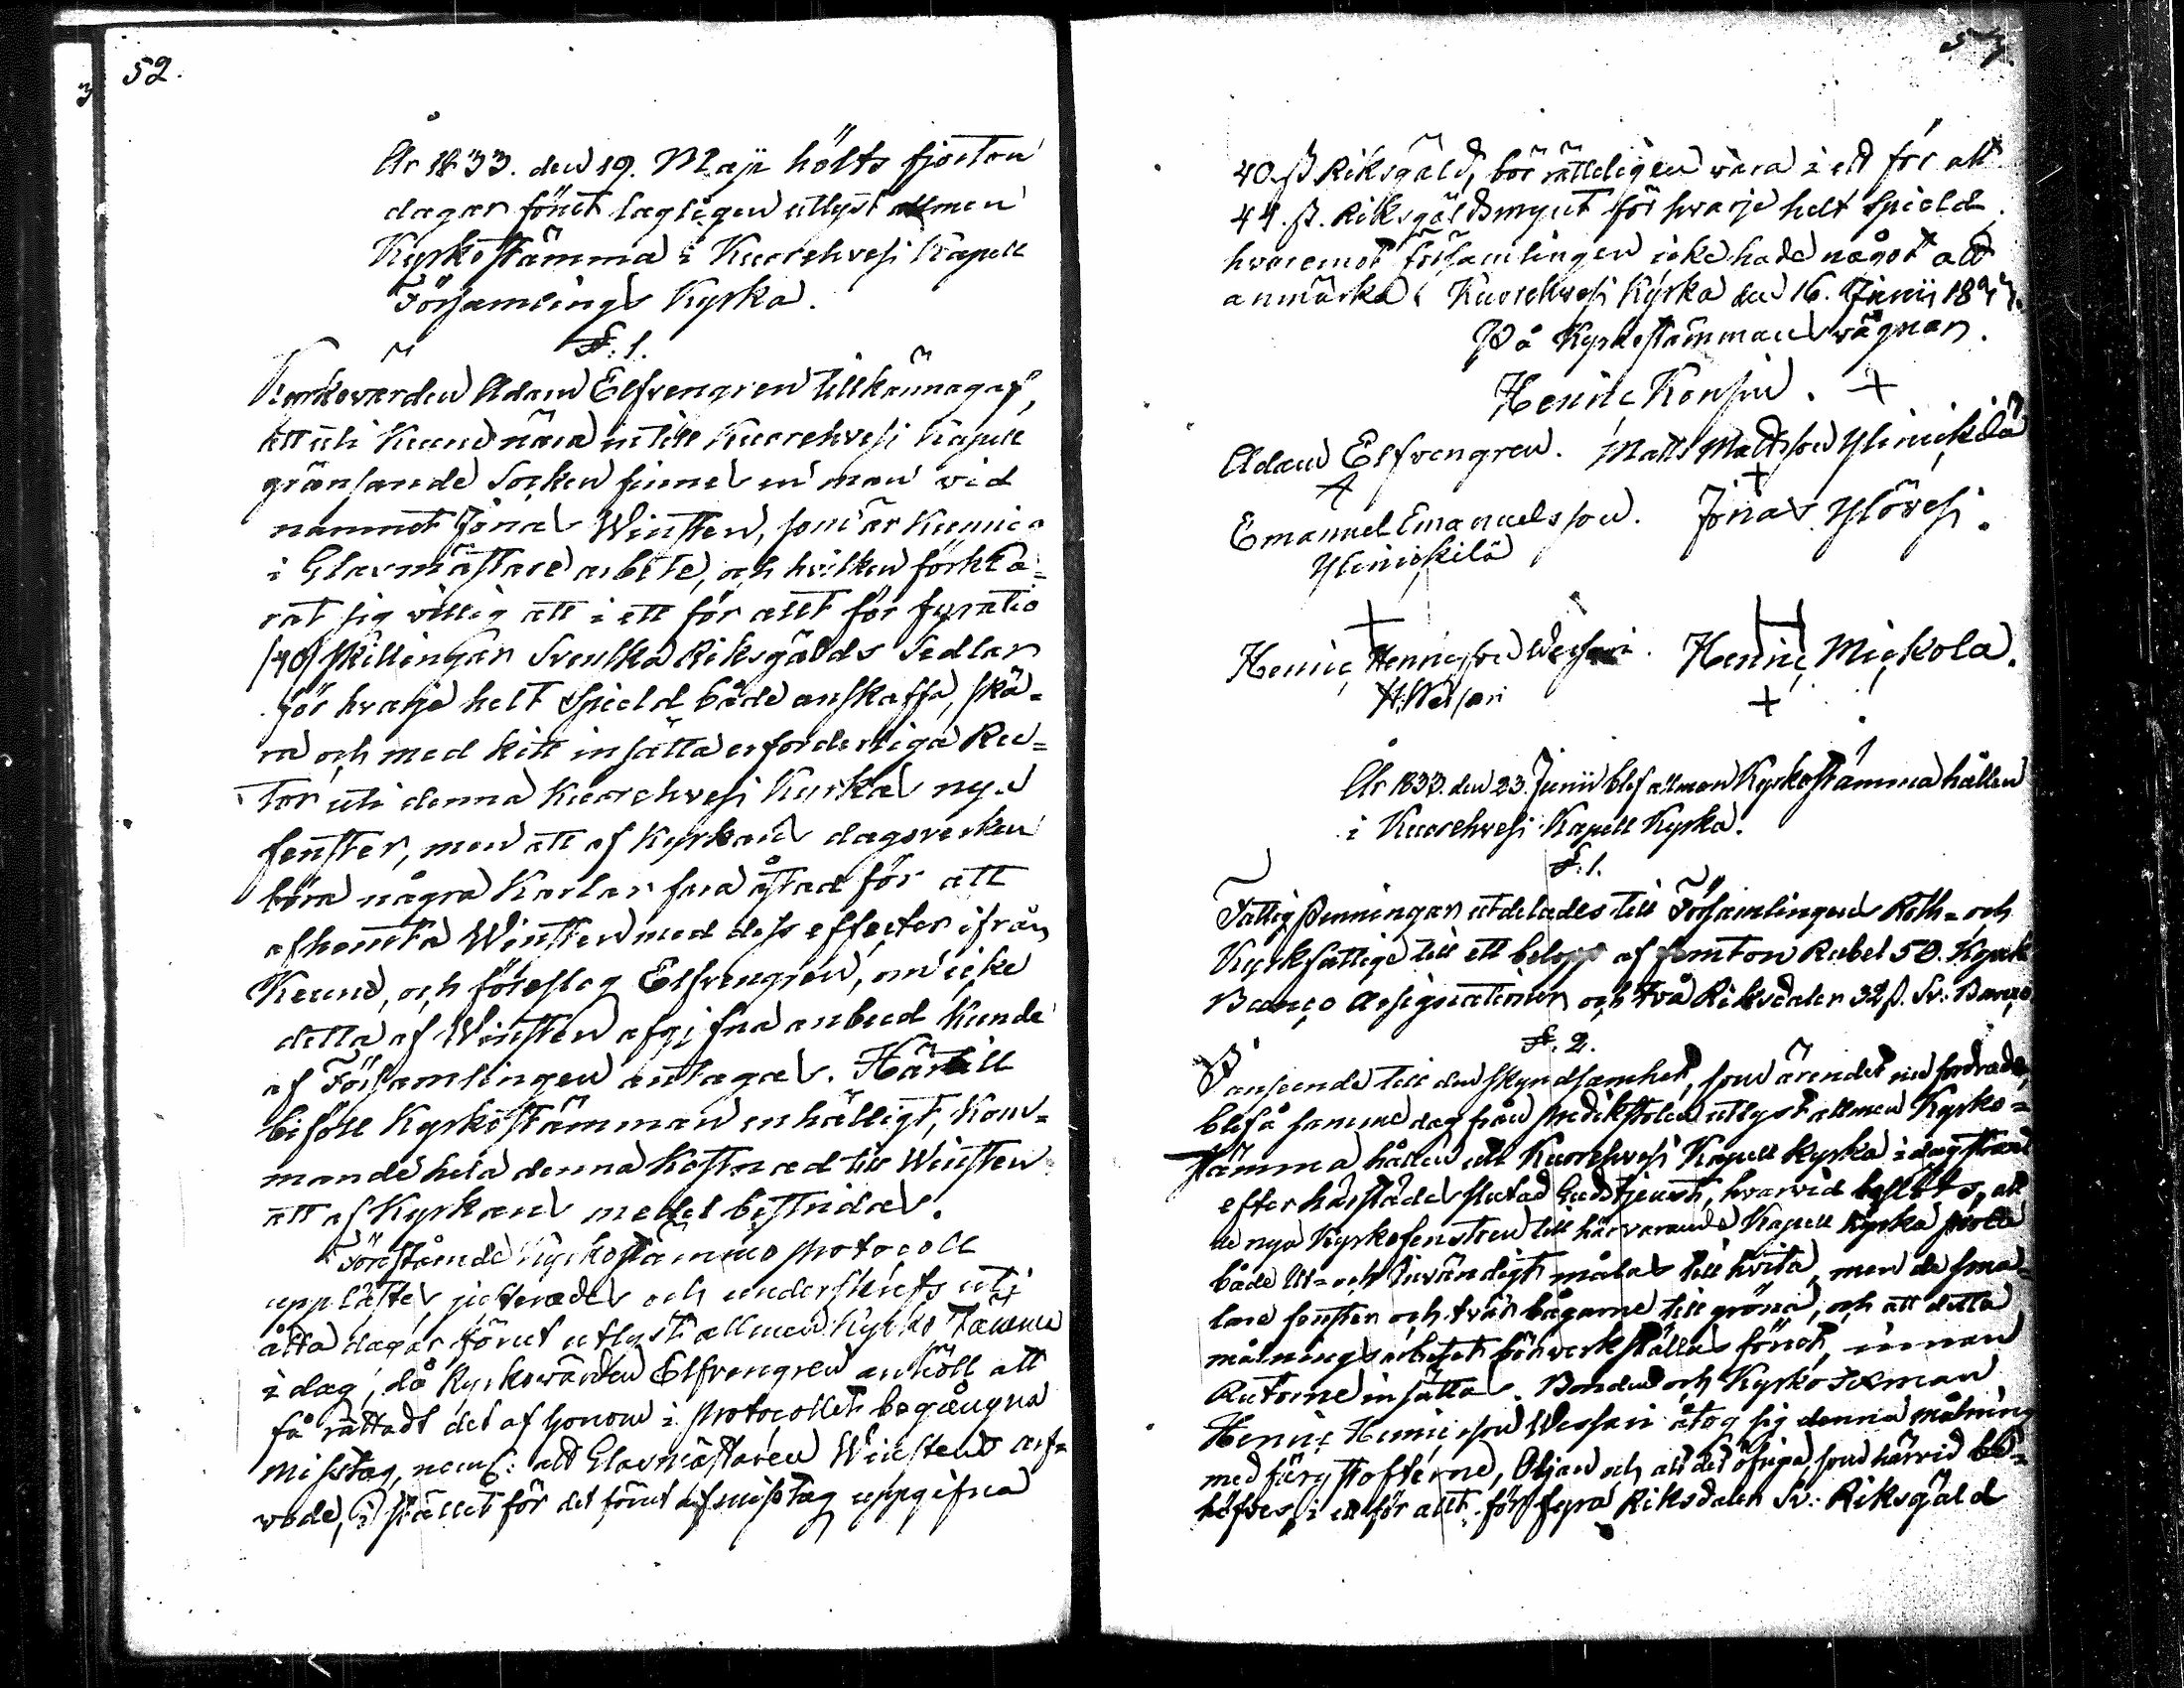 52.
År 1833. den 19. Maji hölts fjorton
dagar förut lagligen utlyst allmen
Kyrkostämma i Kuorehvesi Kapell
Församlings Kyrka.
§. 1.
Kyrkovärden Adam Elfvengren tillkännagaf,
att uti Keuru nära intill Kuorehvesi Kapell
gränsande Socken finnes en man vid
namnet Jonas Winsten, som är kunnig
i Glasmästare arbete, och hvilken förkla=
rat sig villig att i ett för allt för fyratio
/40/ skillingar Svenska Riksgälds Sedlar
för hvarje helt Spield både anskaffa, skä=
ra och med kitt insätta erforderliga Ru=
tor uti denna Kuorehvesi Kyrkas nya
fenster, men att af Kyrkans dagsverken
böra några Karlar fara åstad för att
afhemta Winsten med dess effecter ifrån
Keuru, och föreslog Elfvengren, om icke
detta af Winsten afgifna anbud kunde
af Församlingen antagas. Härtill
biföll Kyrkostämman enhälligt, kom=
mande hela denna kostnad till Winsten
att af Kyrkans medel bestridas.
Förestående Kyrkostämmo protocoll
upplästes, justerades och underskrefs uti
åtta dagar förut utlyst allmen Kyrkostämma
i dag, då Kyrkovärden Elfvengren anhöll att
få rättadt det af honom i Protocollet begångna
misstag, neml: att Glasmästaren Winstens arf=
vode, i stället för det förut af misstag uppgifna
57.
40. ß Riksgäld, bör rätteligen vara i ett för allt
44. ß. Riksgäldsmynt för hvarje helt Spield
hvaremot församlingen icke hade något att
anmärka. Kuorehvesi Kyrka den 16. Junii 1833.
På Kyrkostämmans vägnar.
Henric Konsin. +
Adam Elfvengren. Matts Mattsson Ylinickilä
+
Emanuel Emanuelsson. Jonas Ylövesi.
Ylinickilä
Henric Henricsson Wessari. Henric Mickola.
H. Wessari +
År 1833. den 23. Junii blef allmen Kyrkostämma hållen
i Kuorehvesi Kapell Kyrka.
§. 1.
Fattig Penningar utdelades till Församlingens Roth= och
Kyrkfattige till ett belopp af femton Rubel 50. Kopek
Banco Assignationer och två Riksdaler 32 ß. Sv: Banco
§. 2.
I anseende till den skyndsamhet, som ärendet nu fordrade,
blef å samme dag från Predikstolen utlyst allmen Kyrko=
stämma hållen uti Kuorehvesi Kapell Kyrka i dag strax
efter härstädes slutad Gudstjenst, hvarvid beslöts, att
de nya Kyrkofenstren till härvarande Kapell Kyrka skola
både Ut= och Invändigt målas till hvita, men de sma=
lare fenster och tvär bågarne till gröna, och att detta
målnings arbetet bör verkställas förut, innan
Rutorne insättas. Bonden och Kyrko Sexman
Henric Henricsson Wessari åtog sig denna målning
med färgstofterne, Oljan och allt det öfriga som härvid be=
höfves, i ett för allt för fyra Riksdaler Sv: Riksgäld